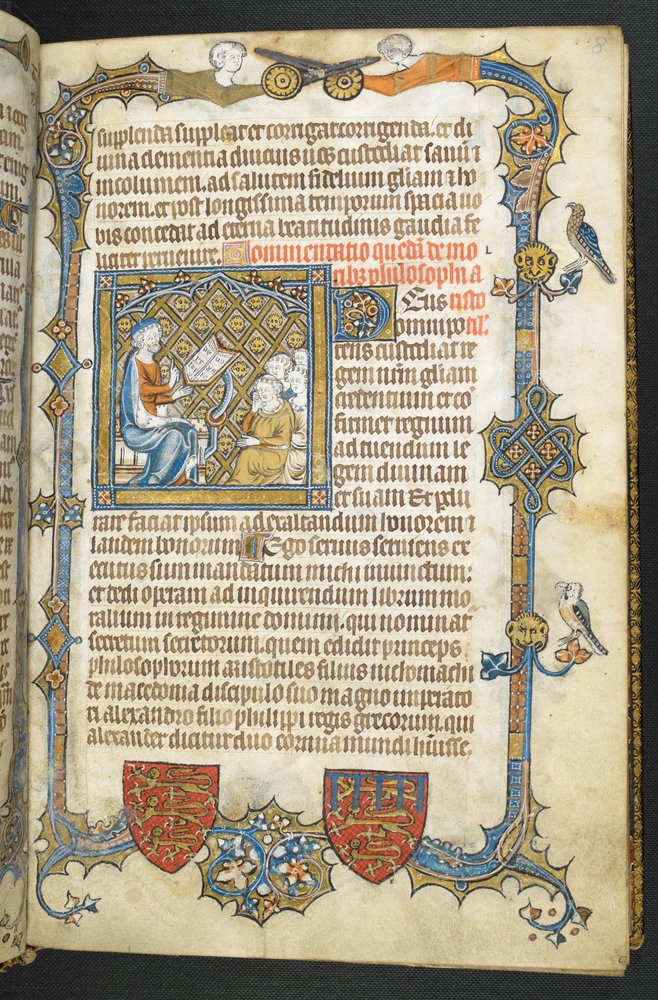 8
supplenda suppleat et corrigat corrigenda. et di
uina clementia uos custodiat sanum ⁊
incolumem. ad salutem fidelium gliam ⁊ ho
norem. et post longissima temporum spacia uo
bis concedat ad eterna beatitudinis gaudia fe
liciter peruenire. Commendatio quedā de mo
ribꝫ philosophi a
Deus custo
omnipo
tens custodiat re
gem nr̄m gliam
credentium et cō
firmet regnum
ad tuendum le
gem diuinam
et suam Et pdu
rare faciat ipsum ad exaltandum honorem ⁊
laudem bonorum Ego seruus ex
ecutus sum mandatum michi iniunctum.
et dedi operam ad inquirendum librum mo
ralium in regimine domini. qui nominat
secretum secretorum. quem edidit princeps
philosophorum aristotiles filius nichomachi
de macedonia discipulo suo magno imperato
ri alexandro filio philippi regis grecorum. qui
alexander dicitur duo cornua mundi huisse.